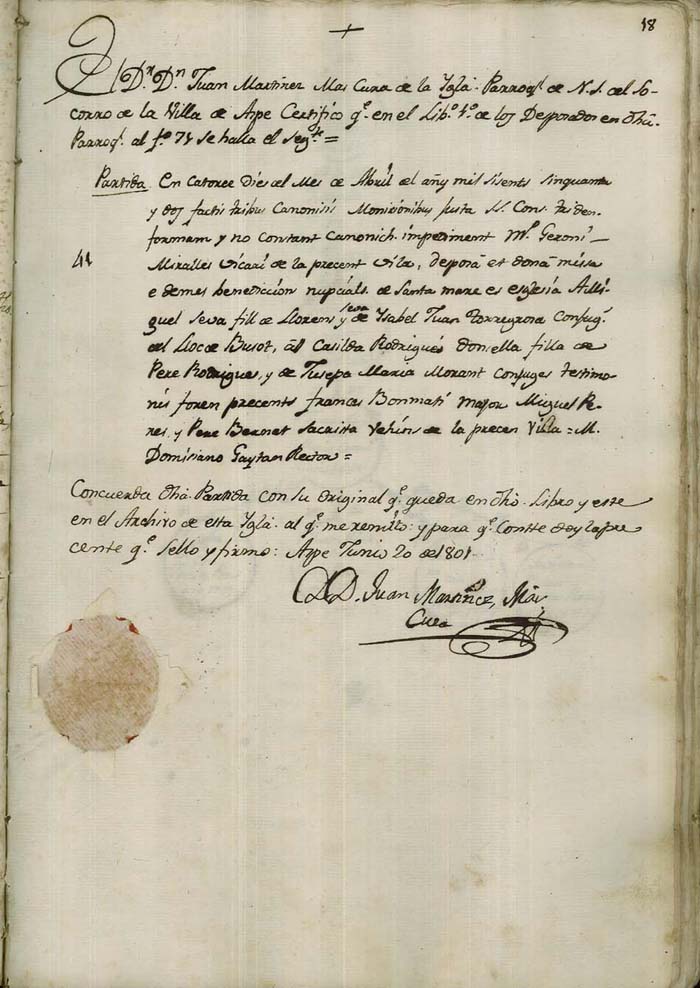 18
El Dr. Dn. Juan Martinez Mas Cura de la Ygla. Parroql. de N. S. del So-
corro de la Villa de Aspe Certifico qe. en el Libo. 1o. de los Desposados en dha.
Parroql. al fo. 74 se halla el segte. =
Partida. En Catorce Dies del Mes de Abril del añy mil sisents sinquanta
y dos factis tribus Canonisis Monisionibus justa S. Cons. triden.
formam y no constant canonich. impediment Mn. Geroni
41
Miralles vicari de la precent vila, desposá et doná missa
e demes benedicción nupcials. de santa mare es esglesia a Mi-
guel seva fill de Llorens y seva de Ysabel Juan Torregrosa Conjug.
del Lloc de Busot, ab Casilda Rodrigues donsella filla de
Pere Rodrigues, y de Jusepa Maria Morant conjuges testimo
nis foren precents frances Bonmati major Miguel Pe-
res, y Pere Bernet Sacrista vehins de la precen Villa = M.
Domisiano Gaytan Rector =
Concuerda dha. Partida con su original qe. queda en dho. Libro y este
en el Archivo de esta Ygla. al qe. me remito: y para qe. Conste doy la pre
cente qe. sello y firmo: Aspe Junio 20 de 1801
D. D. Juan Martinez, Mas
Cura